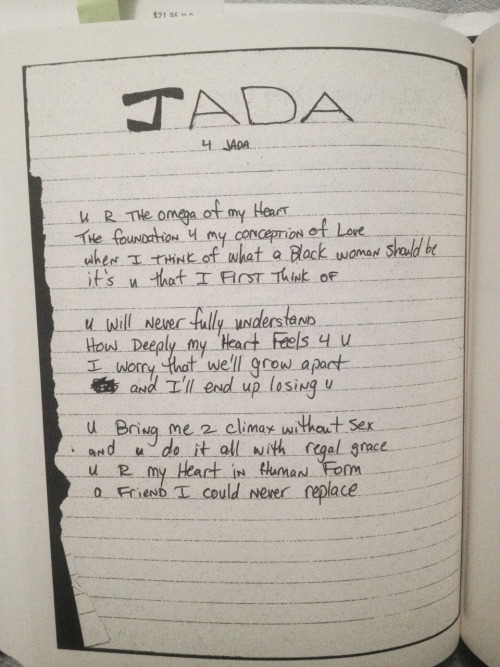 JADA
4 JADA
u R THE omega of my Heart
THE foundation 4 my conception of Love
when I THINK of what a Black woman should be
it's u that I FIRST Think OF
u will never fully understand
How Deeply my Heart Feels 4 u
I worry that we'll grow apart
and I'll end up losing u
u Bring me 2 climax without sex
and u do it all with regal grace
u R my Heart in Human Form
a Friend I could never replace